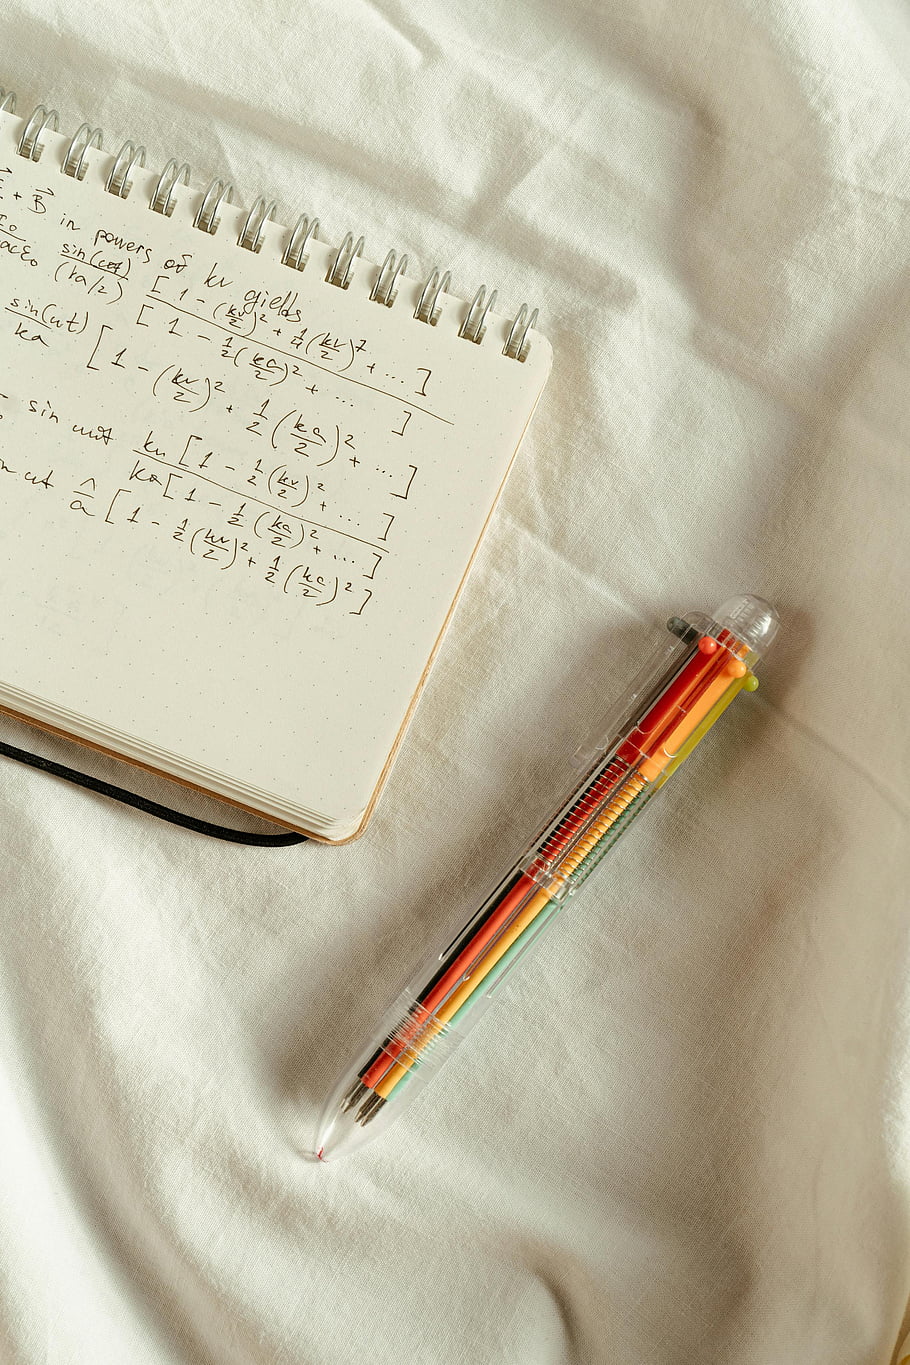 + B⃗ in powers of kr yields
sin(ωt) / (ka/2) [1 - (kr/2)² + 1/4(kr/2)⁷ + ...] / [1 - 1/2(ka/2)² + ... ]
sin(ωt) / ka [1 - (kr/2)² + 1/2(ka/2)² + ...]
sin ωt kr[1 - 1/2(kr/2)² + ... ] / ka[1 - 1/2(ka/2)² + ...]
ωt â [1 - 1/2(kr/2)² + 1/2(ka/2)²]